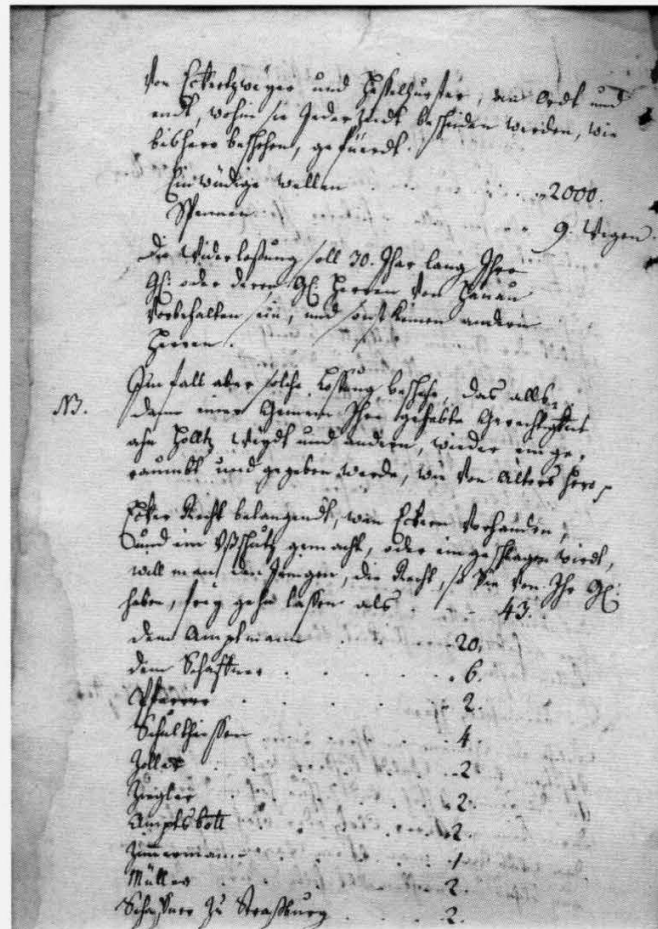 Von Eckertzweyer und Hesselhurster, an Ordt und
endt, wohin sie Jeder Zeidt bescheiden werden, wie
bishero beschehen, gefüerdt.
Einwüdige wellen . . . 2000.
Spennen . . . 9. Wegen.
Die Widerlosung soll 30. Jhar lang Ihro
Gl: oder deren Gl. Herren Von Hanau
Vorbehalten sein, und sonst keinen andern
Herren.
NB. Im fall aber solche Losung beschehe, das alls-
dann einer Gemein Ihre gehabte Gerechtigkeit
ahn Holltz Weydt und andern, wieder einge-
raumbt und gegeben werde, wie Von Alters hero,
Ecker Recht belangendt, wan Eckern Vorhanden,
und ein geschlagen wirdt,
will man den Jenigen, die Recht, so Sie Von Ihr Gl:
haben, frey gehn lassen als . 43.
dem Amptmann . . . 20.
dem Schaffner . . . . 6.
Pfarrer . . . . 2.
Schultheissen . . . . 4.
Zoller . . . . 2
Ziegler . . . . 2.
Amptsbott . . . . 2.
Zimmermann . . . . 1
Müller . . . . 2.
Schaffner Zu Straßburg . . 2.